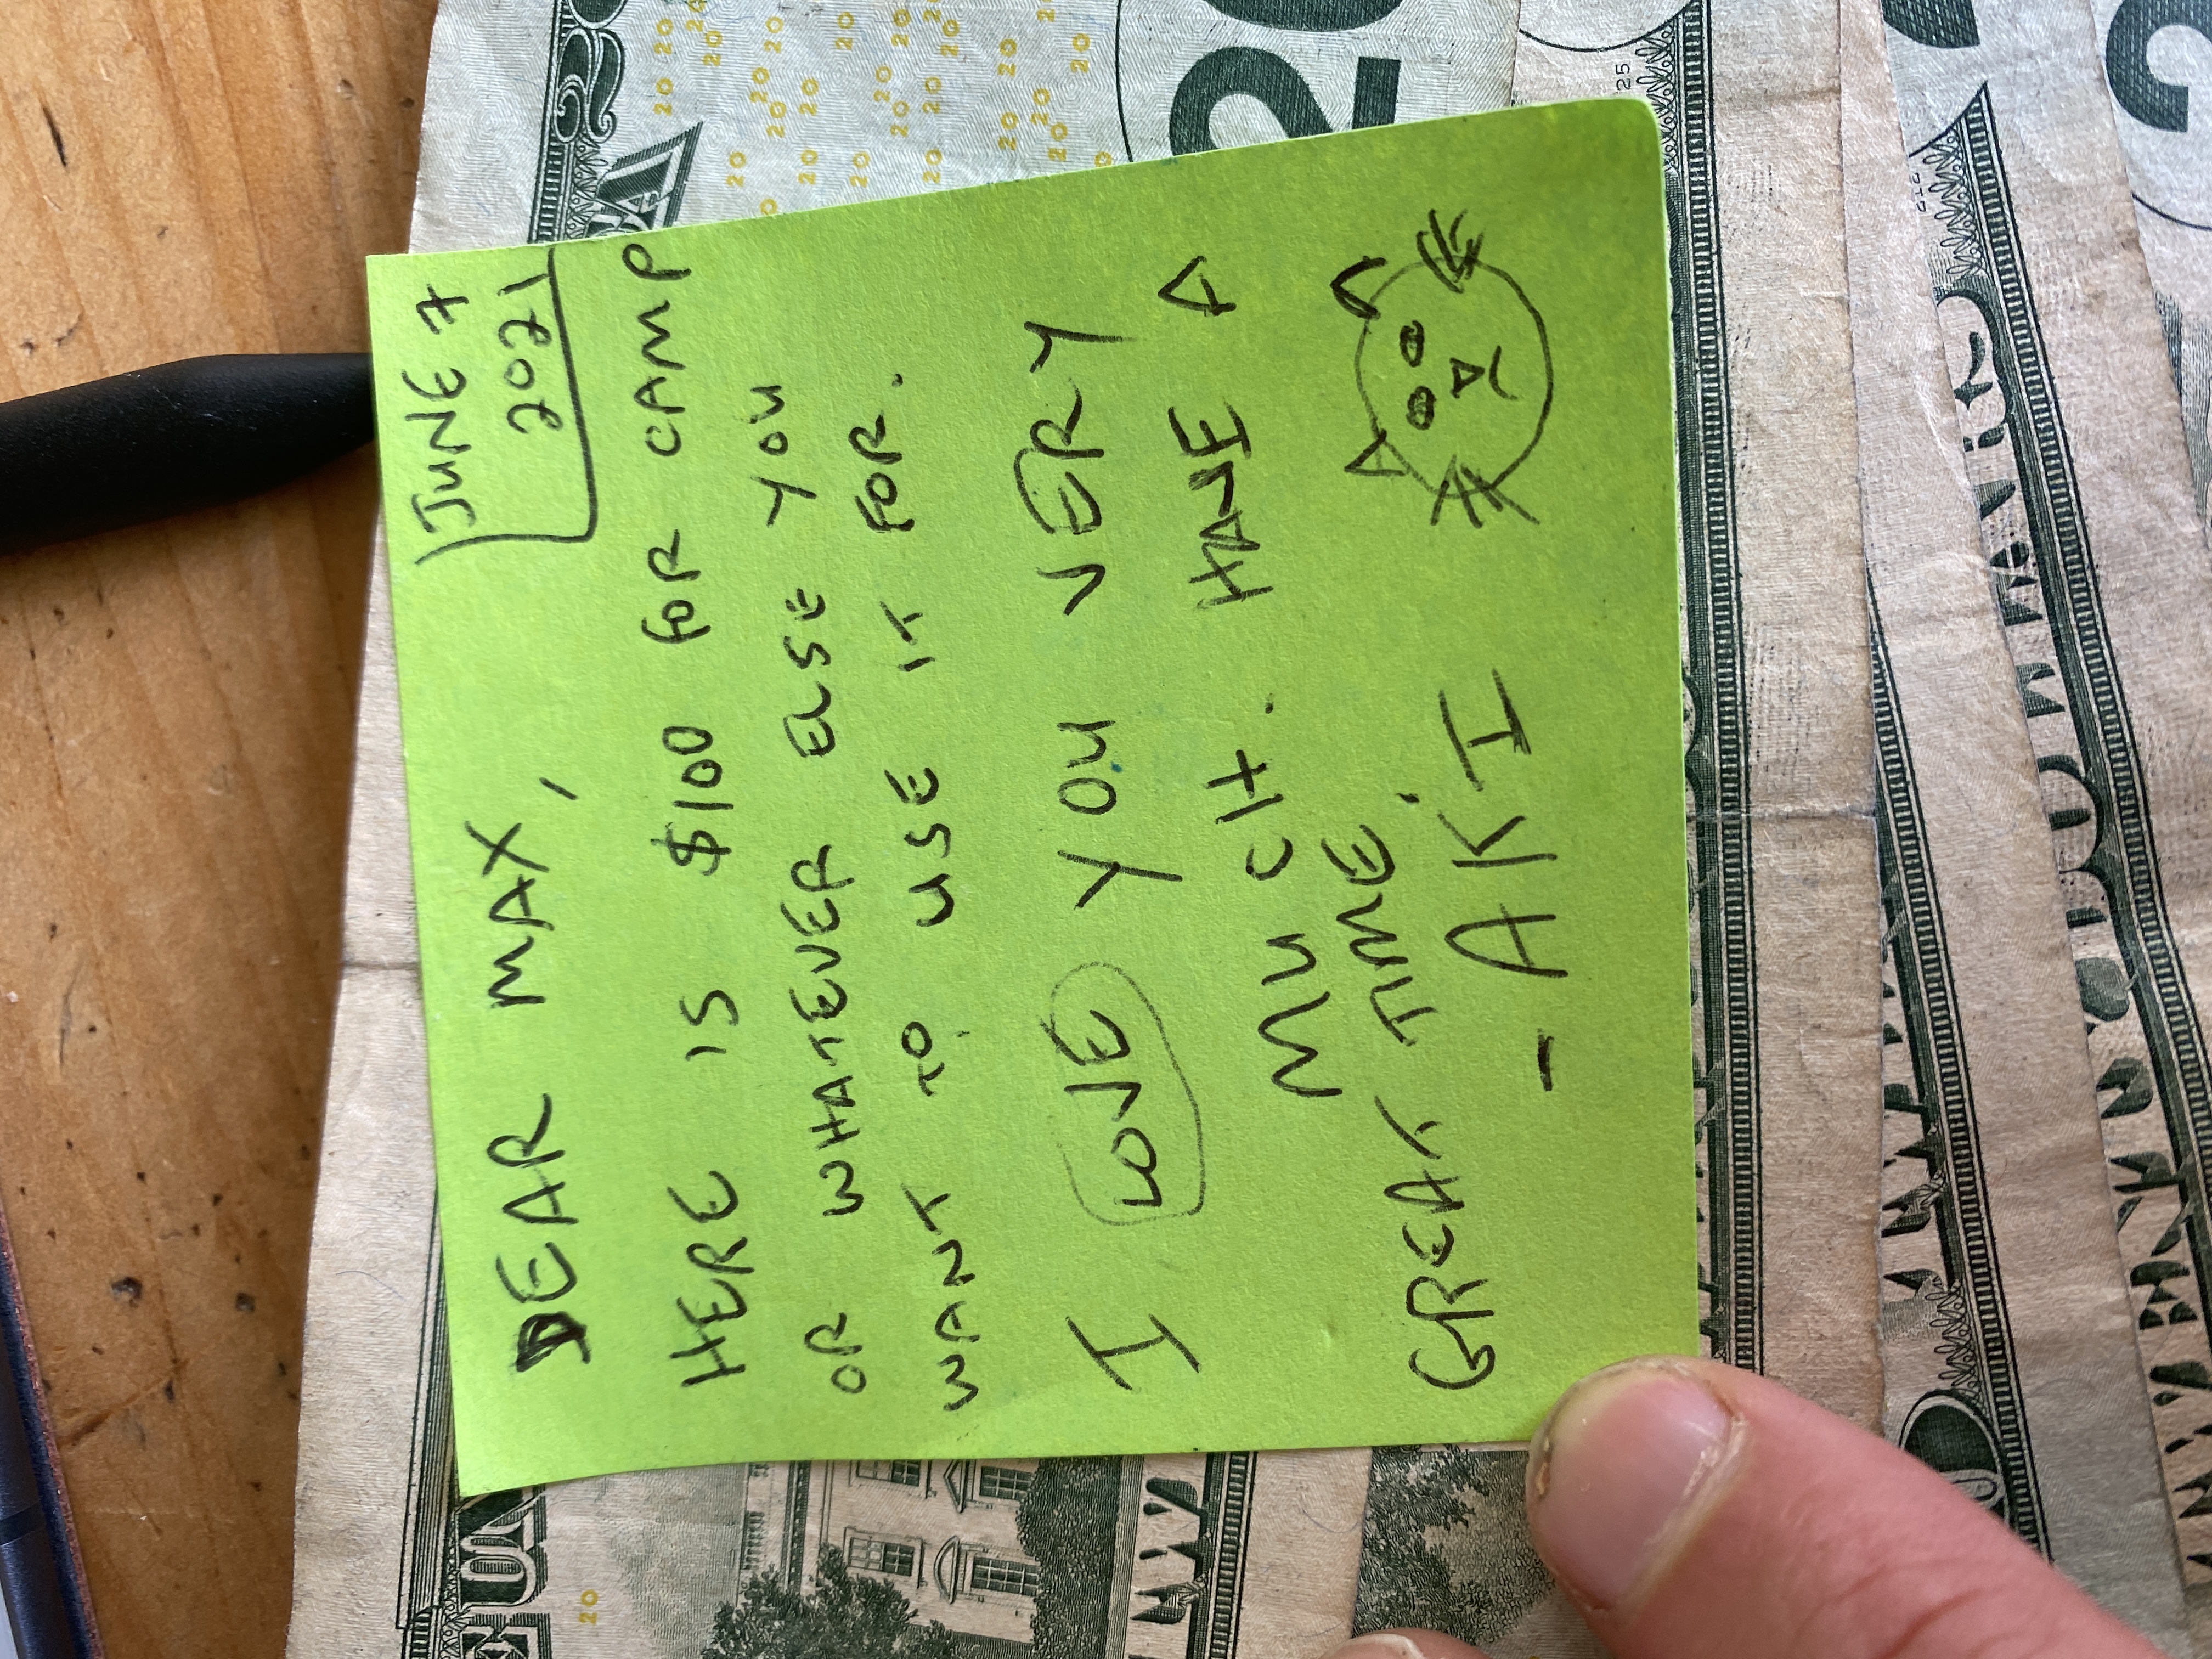 JUNE 7
2021
DEAR MAX,
HERE IS $100 FOR CAMP
OR WHATEVER ELSE YOU
WANT TO USE IT FOR.
I LOVE YOU VERY
MUCH. HAVE A
GREAT TIME.
- AKI
20